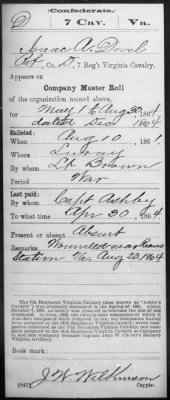 (Confederate.)
D 7 Cav. Va.
Isaac A. Dovel
Pvt, Co. D, 7 Reg't Virginia Cavalry.
Appears on
Company Muster Roll
of the organization named above,
for May 1 to Aug 30, 1864
dated Dec 1864
Enlisted:
When Aug 10, 1861.
Where Luray
By whom Lt Brown
Period War
Last paid:
By whom Capt Ashby
To what time Apr 30, 1864.
Present or absent Absent
Remarks: Wounded near Reams
Station Va. Aug 23, 1864
Book mark:
J W Wilkinson
(642) Copyist.